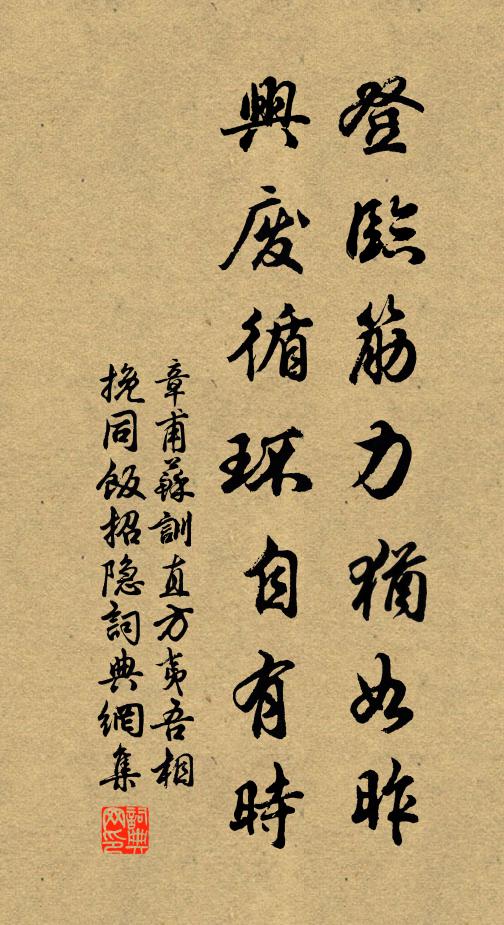 登臨筋力猶如昨
興废循环自有時
章甫蘇訓直方夷吾相
挽同飯招隐詞典網集
詞典網印